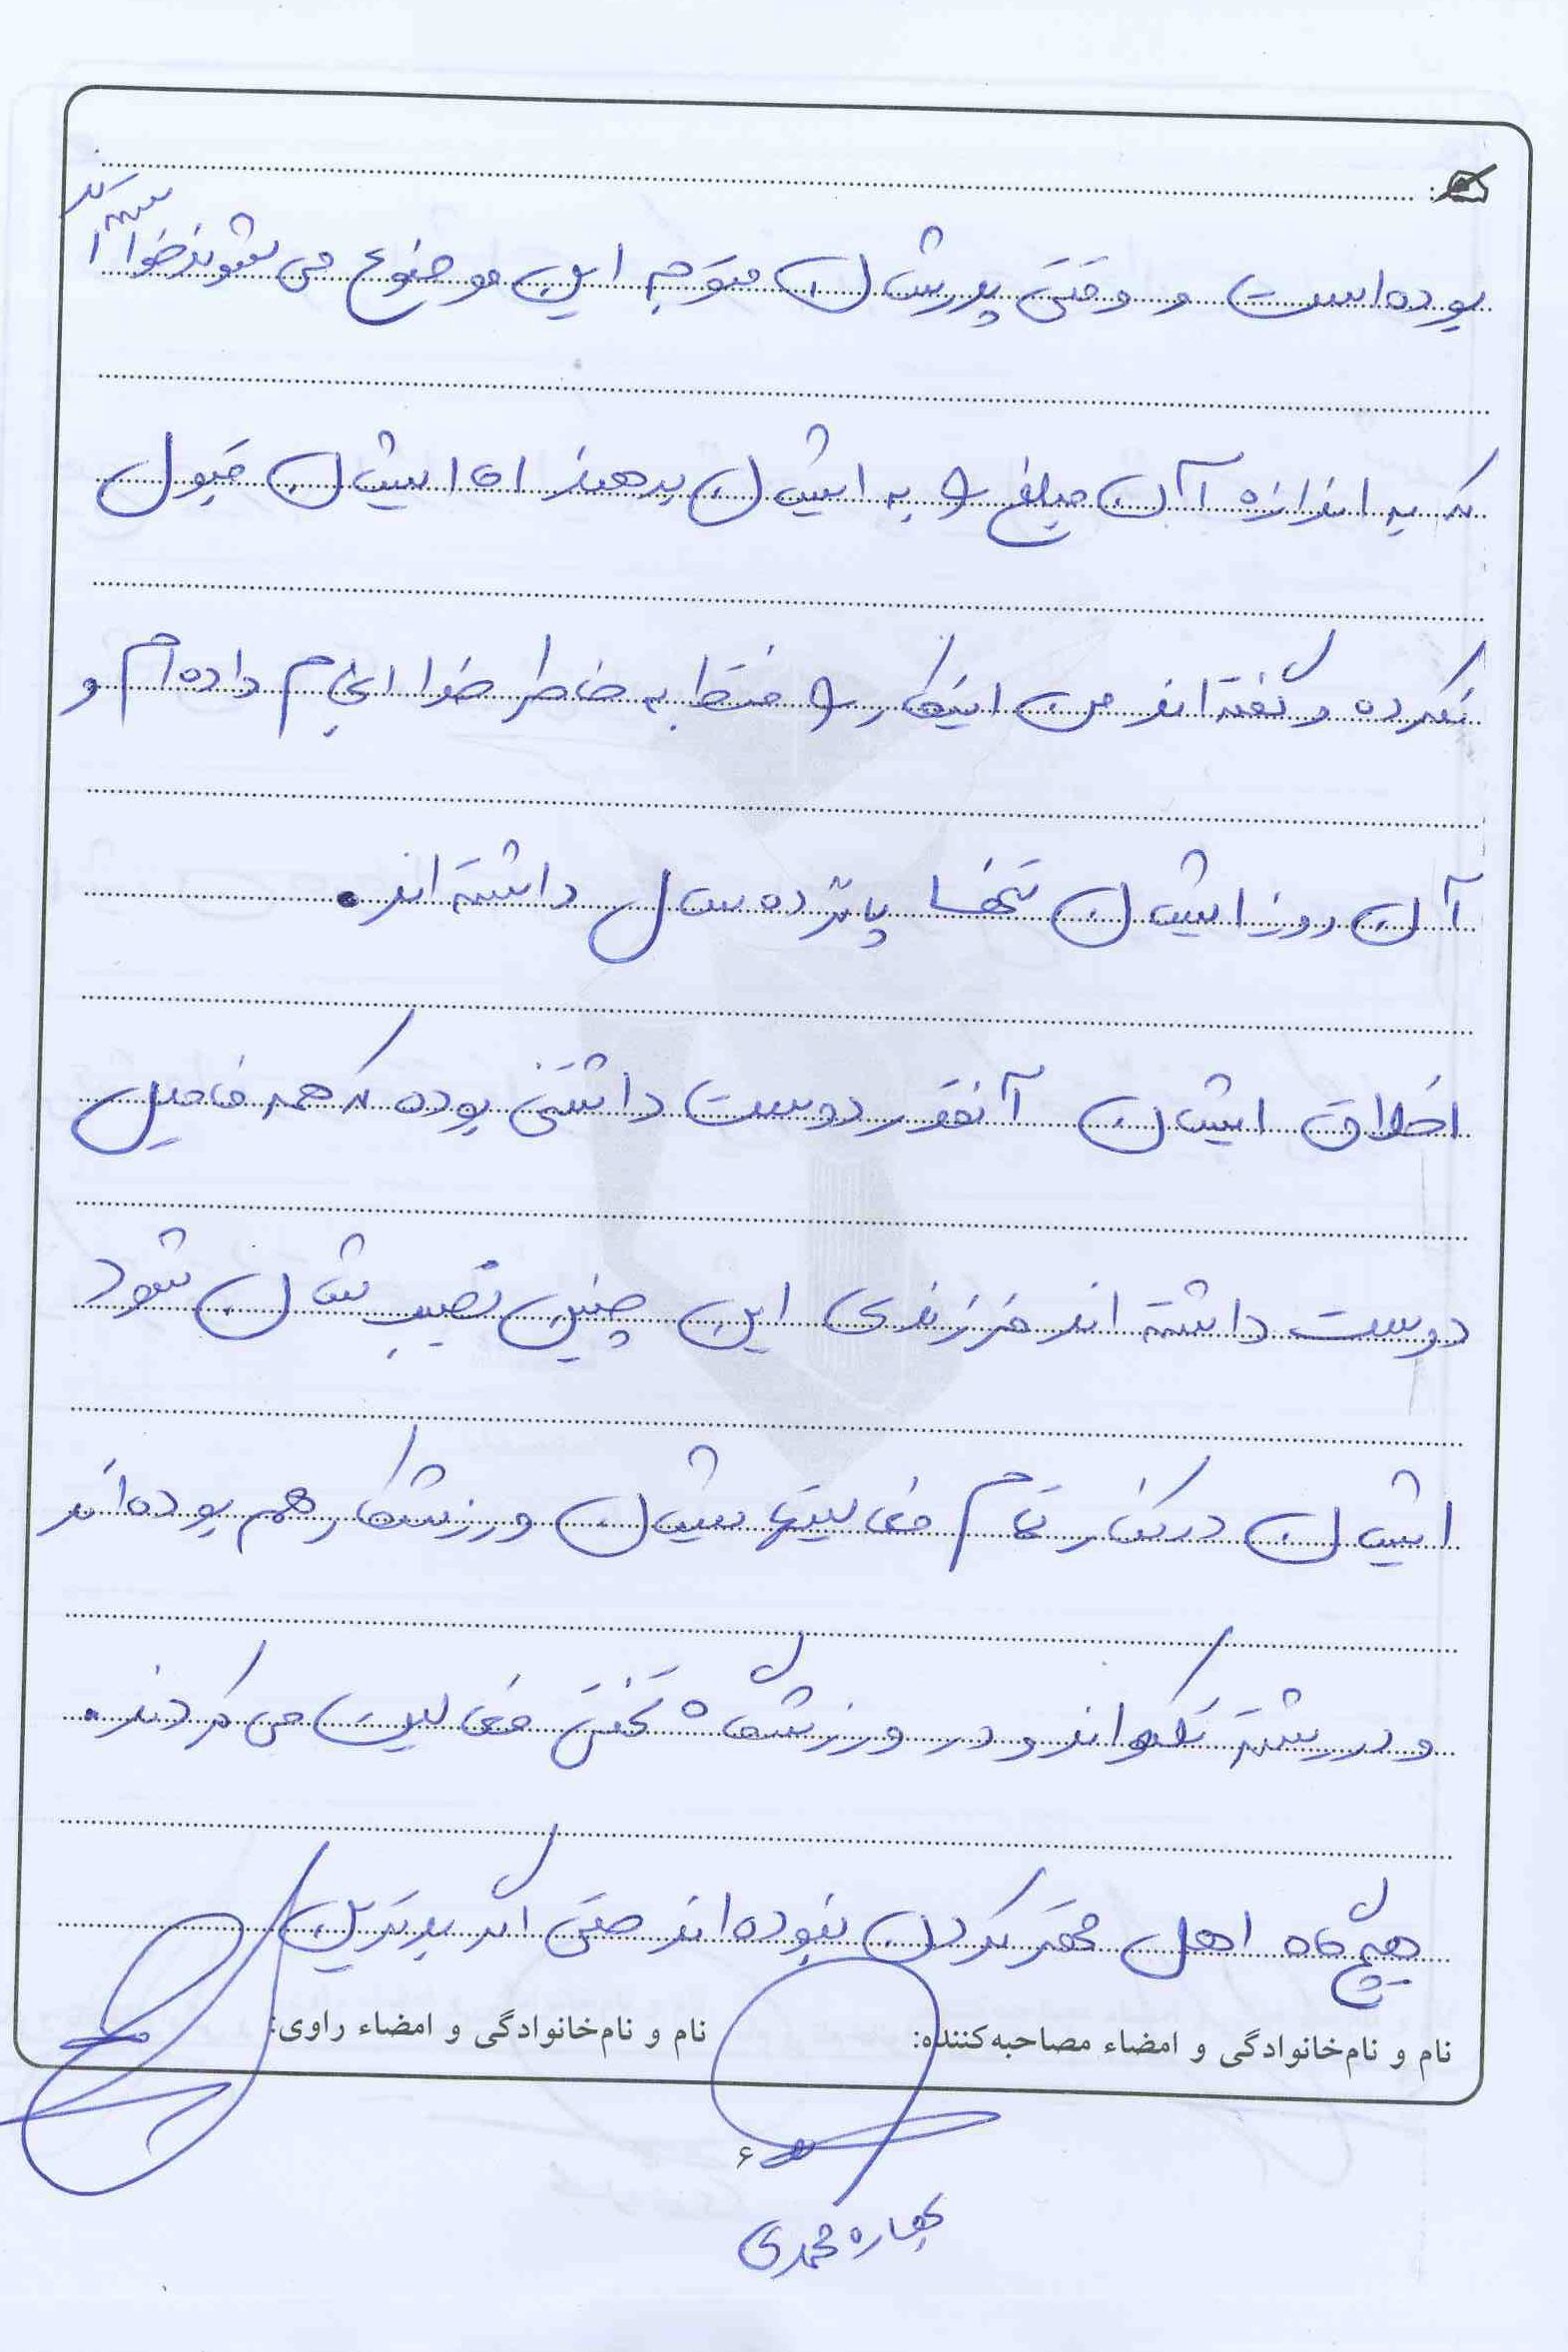 بوده است و وقتی پدرشان متوجه این موضوع می شوند خواسته اند
که به اندازه آن مبلغ را به ایشان بدهند اما ایشان قبول
نکرده و گفته اند من اینکار را فقط به خاطر خدا انجام داده ام و
آن روز ایشان تنها پانزده سال داشته اند.
اخلاق ایشان آنقدر دوست داشتنی بوده که همه فامیل
دوست داشته اند فرزندی این چنین نصیب شان شود
ایشان در کنار تمام فعالیتهایشان ورزشکار هم بوده اند
و در رشته تکواندو در ورزشگاه تختی فعالیت می کردند.
هیچ گاه اهل قهر کردن نبوده اند حتی اگر بدترین
نام و نام‌خانوادگی و امضاء مصاحبه‌کننده:
نام و نام‌خانوادگی و امضاء راوی:
۶
بهاره محمدی